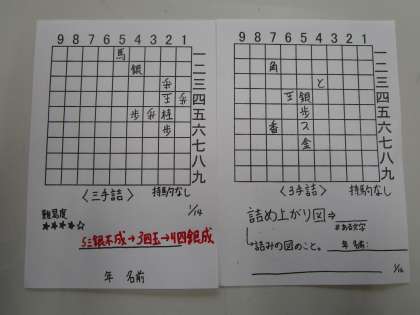 9 8 7 6 5 4 3 2 1
馬 一
銀 二
三
王 四
歩 桂 五
歩 六
七
八
九
〈三手詰〉 持駒なし
難易度
★★★★☆
1/14
5三銀不成→3四玉→4四銀成
年 名前
9 8 7 6 5 4 3 2 1
一
角 二
と 三
王 銀 四
歩 五
香 六
金 七
八
九
〈3手詰〉 持駒なし
詰め上がり図⇒
詰みの図のこと。
年 名前: